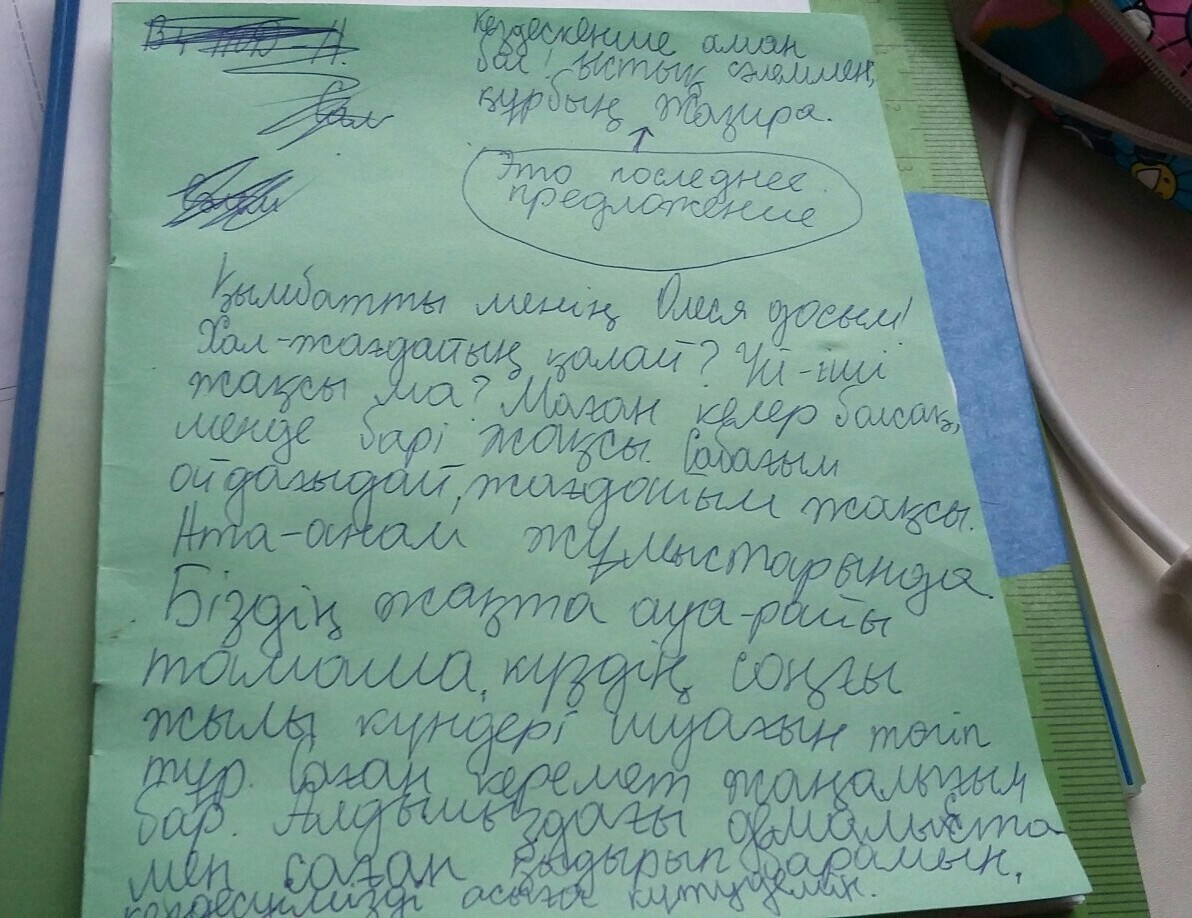 Кездескенше аман
бол! ыстық сәлеммен,
құрбың Жазира.
Это последнее
предложение
Қымбатты менің Олеся досым!
Хал-жағдайың қалай? Үй-іші
жақсы ма? Маған келер болсақ,
менде бәрі жақсы. Сабағым
ойдағыдай, жағдайым жақсы.
Ата-анам жұмыстарында.
Біздің жақта ауа-райы
тамаша, күздің соңғы
жылы күндері шуағын төгіп
тұр. Саған керемет жаңалығым
бар. Алдымыздағы демалыста
мен саған қыдырып барамын,
кездесуімізді асыға күтудемін.